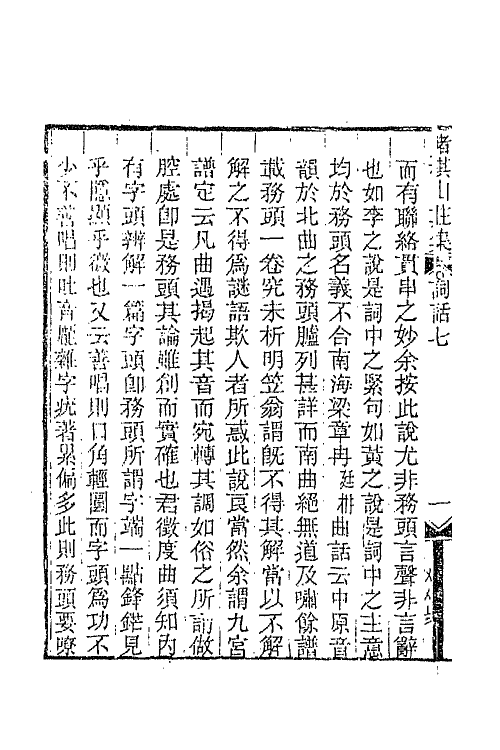 賭棋山莊集 詞話七 一
而有聯絡貫串之妙余按此說尤非務頭言聲非言辭
也如李之說是詞中之緊句如黃之說是詞中之主意
均於務頭名義不合南海梁章冉廷枏曲話云中原音
韻於北曲之務頭臚列甚詳而南曲絕無道及嘯餘譜
載務頭一卷究未析明笠翁謂旣不得其解當以不解
解之不得爲謎語欺人者所惑此說良當然余謂九宮
譜定云凡曲遇揭起其音而宛轉其調如俗之所謂做
腔處卽是務頭其論雖創而實確也君徵度曲須知內
有字頭辨解一篇字頭卽務頭所謂字端一點鋒鋩見
乎隱顯乎微也又云善唱則口角輕圓而字頭爲功不
少不善唱則吐音龎雜字疣著累偏多此則務頭要嘹